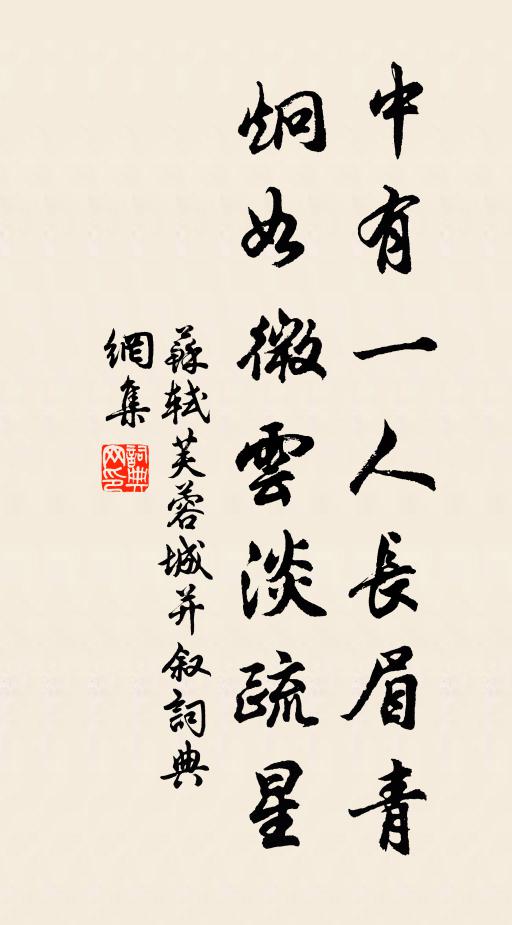 中有一人長眉青
炯如微雲淡疏星
蘇軾芙蓉城并叙詞典
網集
詞典网印